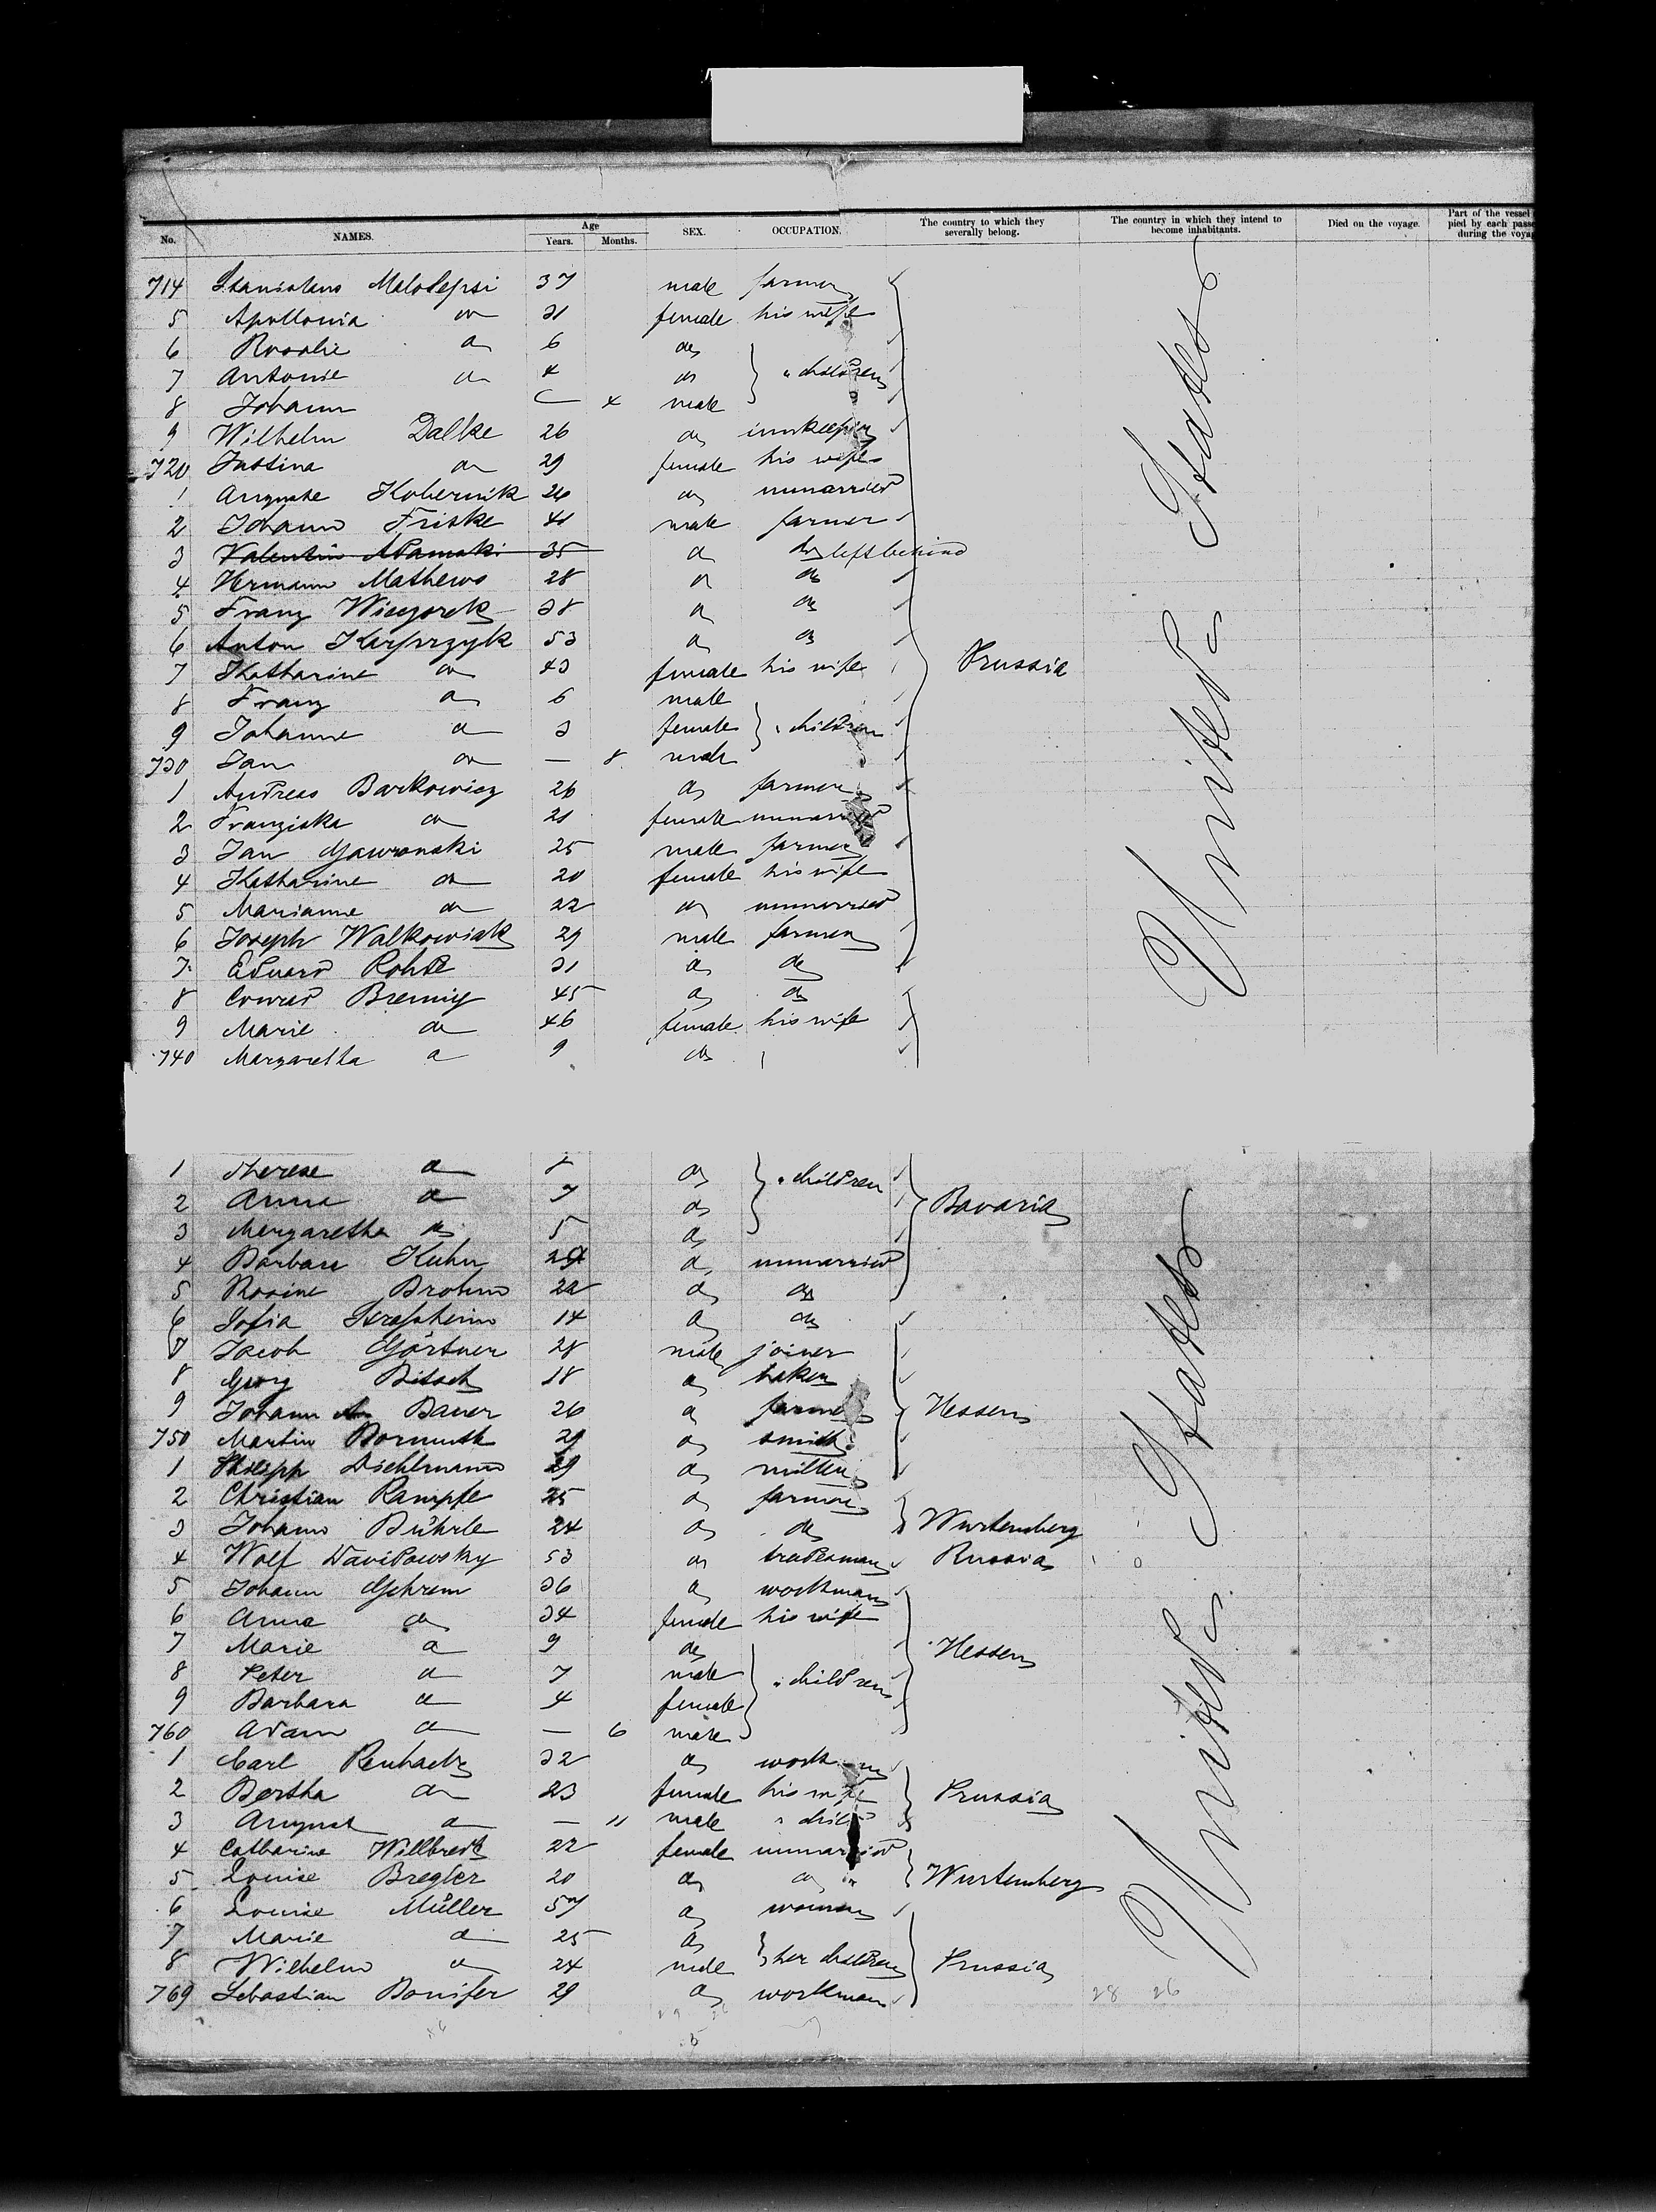 No. NAMES. Age Years. Months. SEX. OCCUPATION. The country to which they severally belong. The country in which they intend to become inhabitants. Died on the voyage. Part of the vessel pied by each passe during the voyag
714 Stanislaus Malolepsi 37 male farmer
5 Apollonia do 31 female his wife
6 Rosalie do 6 do
7 Antonie do 4 do " children
8 Johann 4 male
9 Wilhelm Dalke 26 do innkeeper
720 Justina do 29 female his wife
1 Auguste Kobernik 26 do unmarried
2 Johann Friske 41 male farmer
3 Valentin Adamski 35 do do left behind
4 Hermann Mathews 28 do do
5 Franz Wieczorek 38 do do
6 Anton 53 do do
7 Katharine do 43 female his wife Prussia
8 Franz do 6 male
9 Johanne do 3 female " children
730 Jan do — 8 male
1 Andreas Barkowicz 26 do farmer
2 Franziska do 21 female unmarried
3 Jan Gawronski 25 male farmer
4 Katharine do 20 female his wife
5 Marianne do 22 do unmarried
6 Joseph Walkowiak 29 male farmer
7 Eduard Rohde 31 do do
8 Conrad 45 do do
9 Marie do 46 female his wife
740 Margaretha do 9 do
United States
1 Therese do 8 do " children
2 Anna do 7 do Bavaria
3 Margaretha do 5 do
4 Barbara Kuhn 24 do unmarried
5 Rosine Brohm 22 do do
6 Sofia 14 do do
7 Jacob Gärtner 28 male joiner
8 Georg Bitsch 18 do baker
9 Johann Bauer 26 do farmer Hessen
750 Martin Bormuth 29 do smith
1 Philipp Diehlmann 29 do miller
2 Christian Rampfe 25 do farmer
3 Johann Bührle 24 do do Wurtemberg
4 Wolf Davidowsky 53 do tradesman Russia
5 Johann Gehrem 36 do workman
6 Anna do 34 female his wife
7 Marie do 9 do Hessen
8 Peter do 7 male " children
9 Barbara do 4 female
760 Adam do — 6 male
1 Carl 32 do workman
2 Bertha do 23 female his wife Prussia
3 August do — 11 male " child
4 Catharine Willbrett 22 female unmarried
5 Louise Bregler 20 do do Wurtemberg
6 Louise Müller 57 do woman
7 Marie do 25 do
8 Wilhelm do 24 male her children Prussia
769 Sebastian Bonifer 29 do workman
United States
28 26